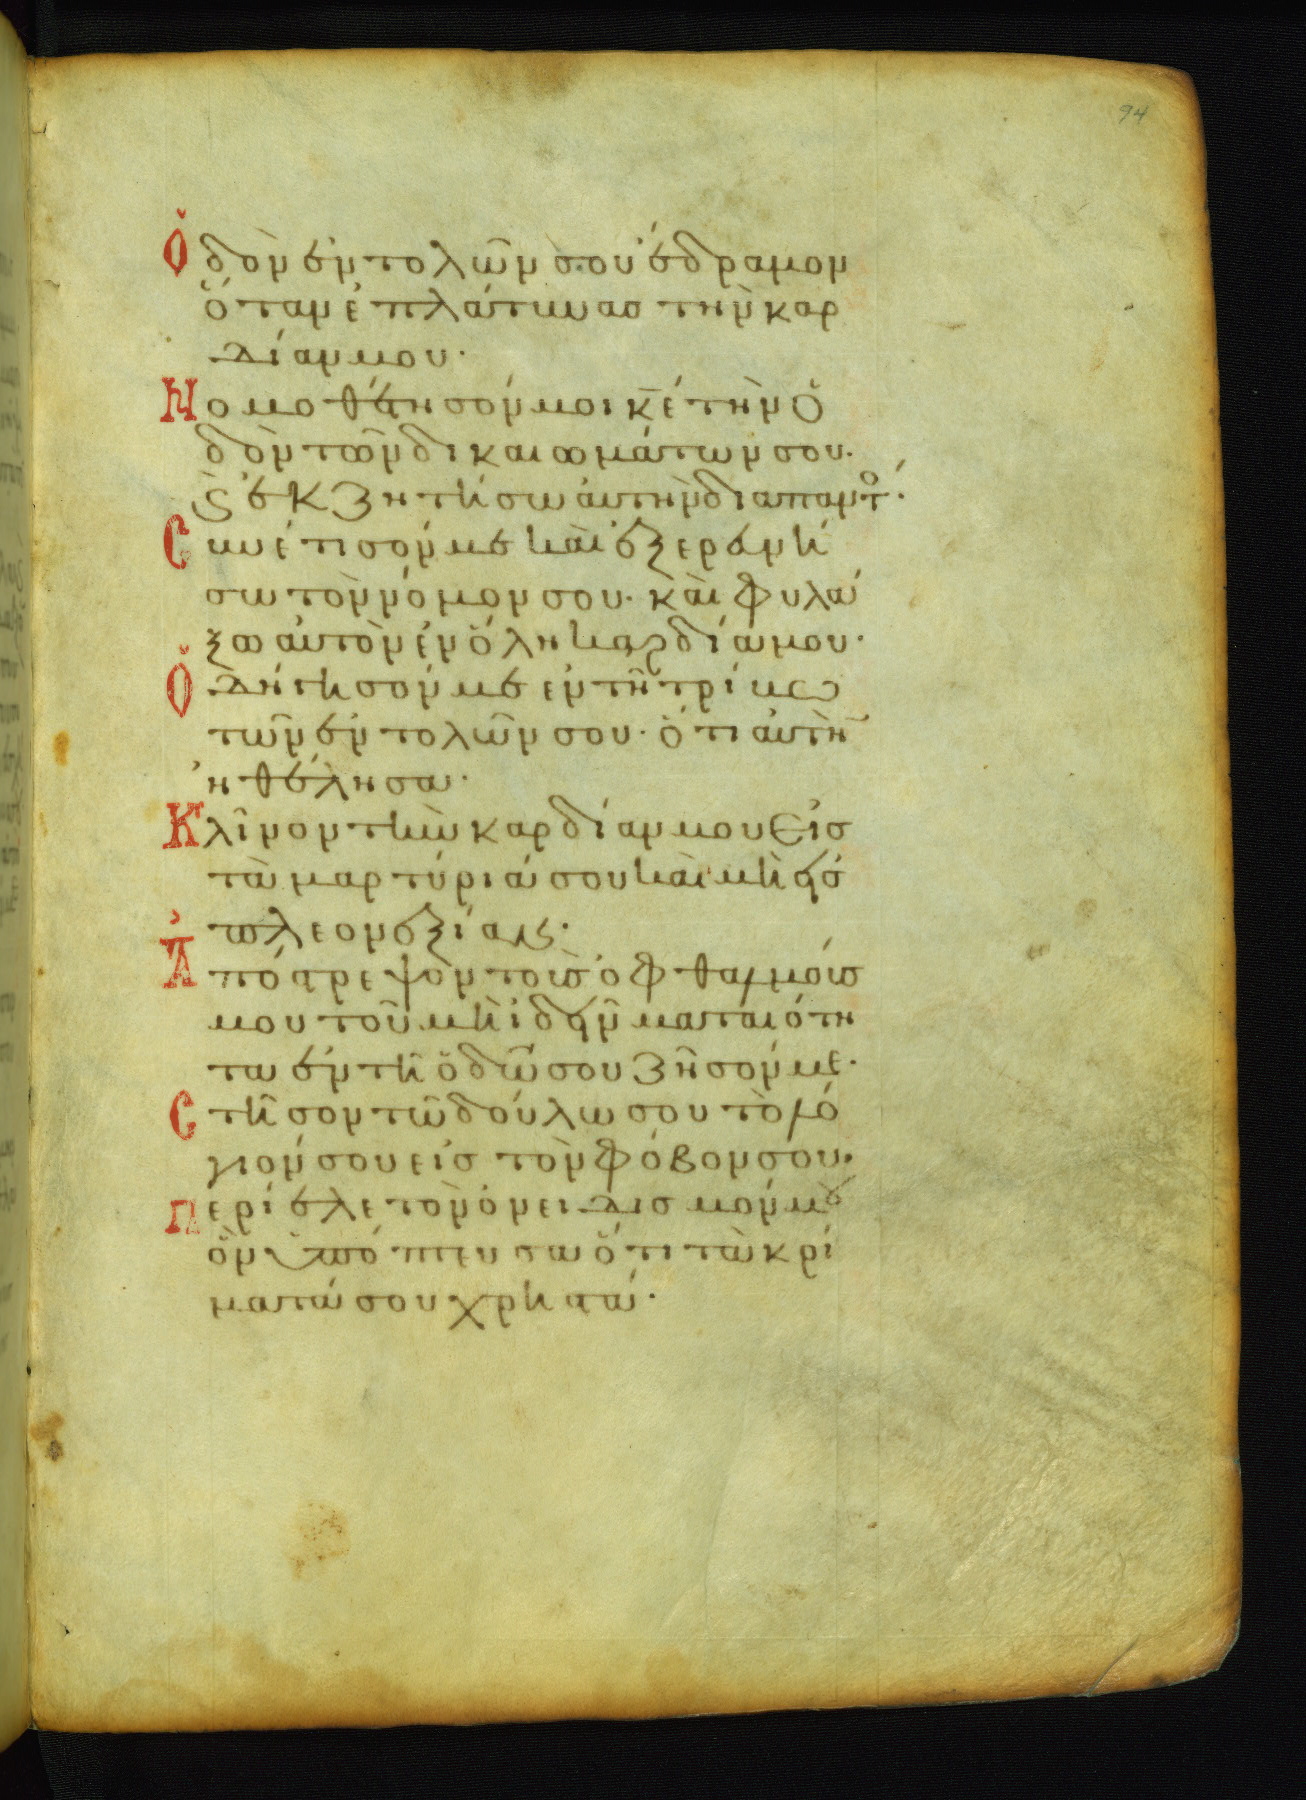 94
Ὁδὸν ἐντολῶν σου ἔδραμον
ὅταν ἐπλάτυνας τὴν καρ
δίαν μου·
Νομοθέτησόν μοι κ̅ε̅ τὴν ὁ
δὸν τῶν δικαιωμάτων σου·
ϗ ἐκζητήσω ἀυτὴν διαπαντό·
Συνέτισόν με καὶ ἐξερευνή
σω τὸν νόμον σου· καὶ φυλά
ξω ἀυτὸν ἐν ὅλη καρδία μου·
Ὁδήγησόν με ἐν τῆ τρίβω
τῶν ἐντολῶν σου· ὅτι ἀυτὴν
ἠθέλησα·
Κλῖνον τὴν καρδίαν μου εἰσ
τὰ μαρτύριά σου καὶ μὴ εἰσ
πλεονεξίαις·
Ἀπόστρεψον τοὺσ ὀφθαλμούσ
μου τοῦ μὴ ἰδεῖν ματαιότη
τα ἐν τῆ ὁδῶ σου ζῆσόν με·
Στῆσον τῶ δούλω σου τὸ λό
γιόν σου εἰσ τὸν φόβον σου·
Περίελε τὸν ὀνειδισμόν μου
ὃν ὑπόπτευσα ὅτι τὰ κρί
ματά σου χρηστά·